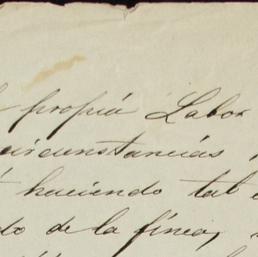 propiá Labor
circunstanciás
haciendo tal
do de la finca,